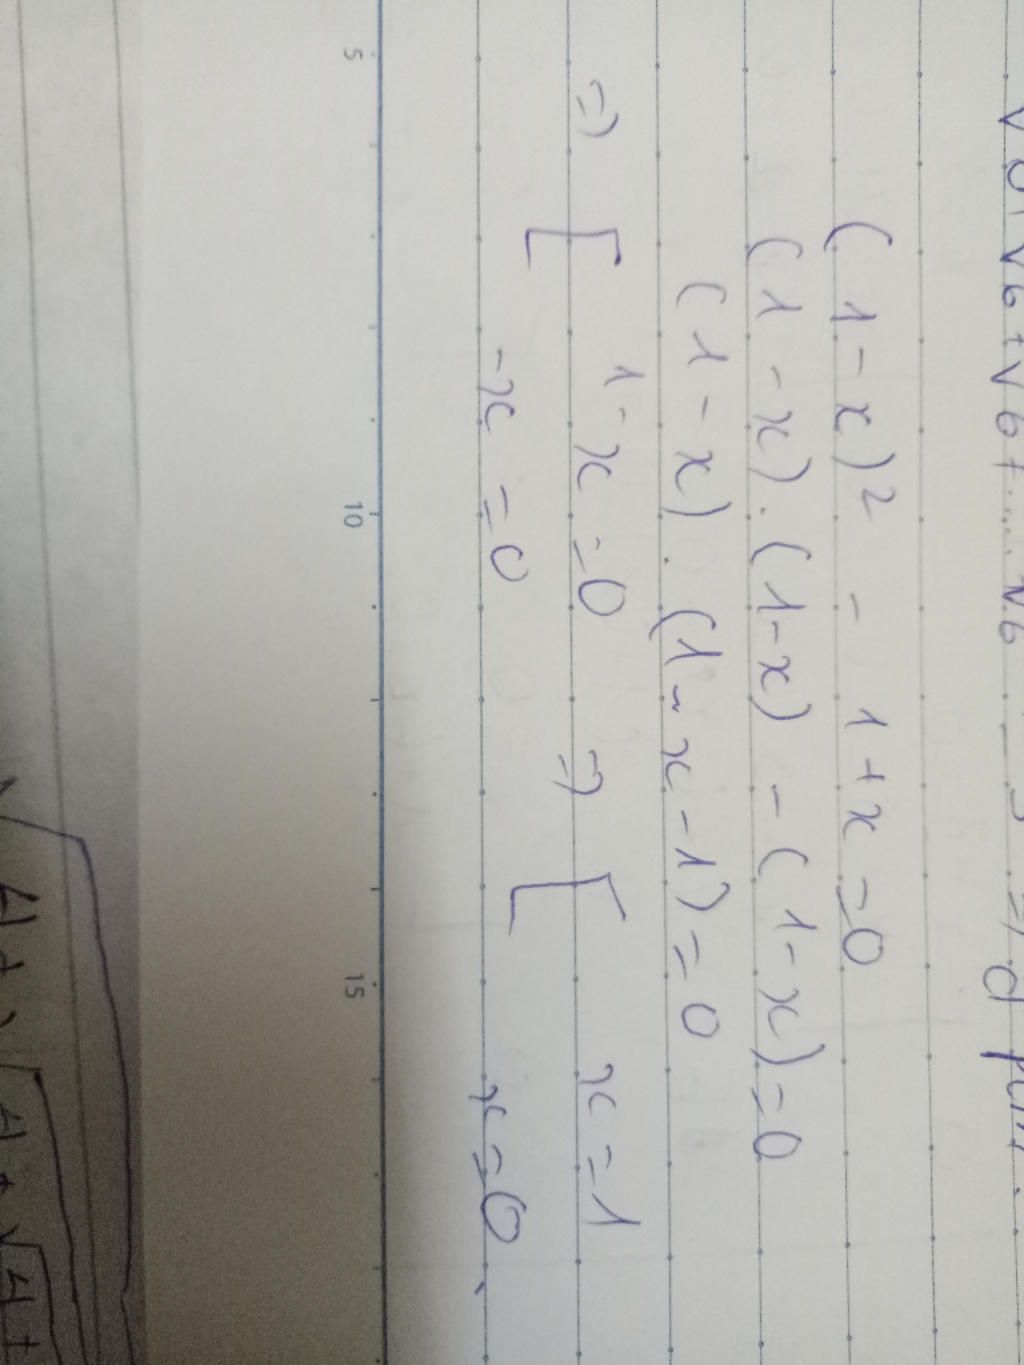 √6+√6+√6+.....√6
(1-x)² - 1+x=0
(1-x).(1-x) -(1-x)=0
(1-x).(1-x-1)=0
=> [ 1-x=0 => [ x=1
-x=0 x=0
5 10 15